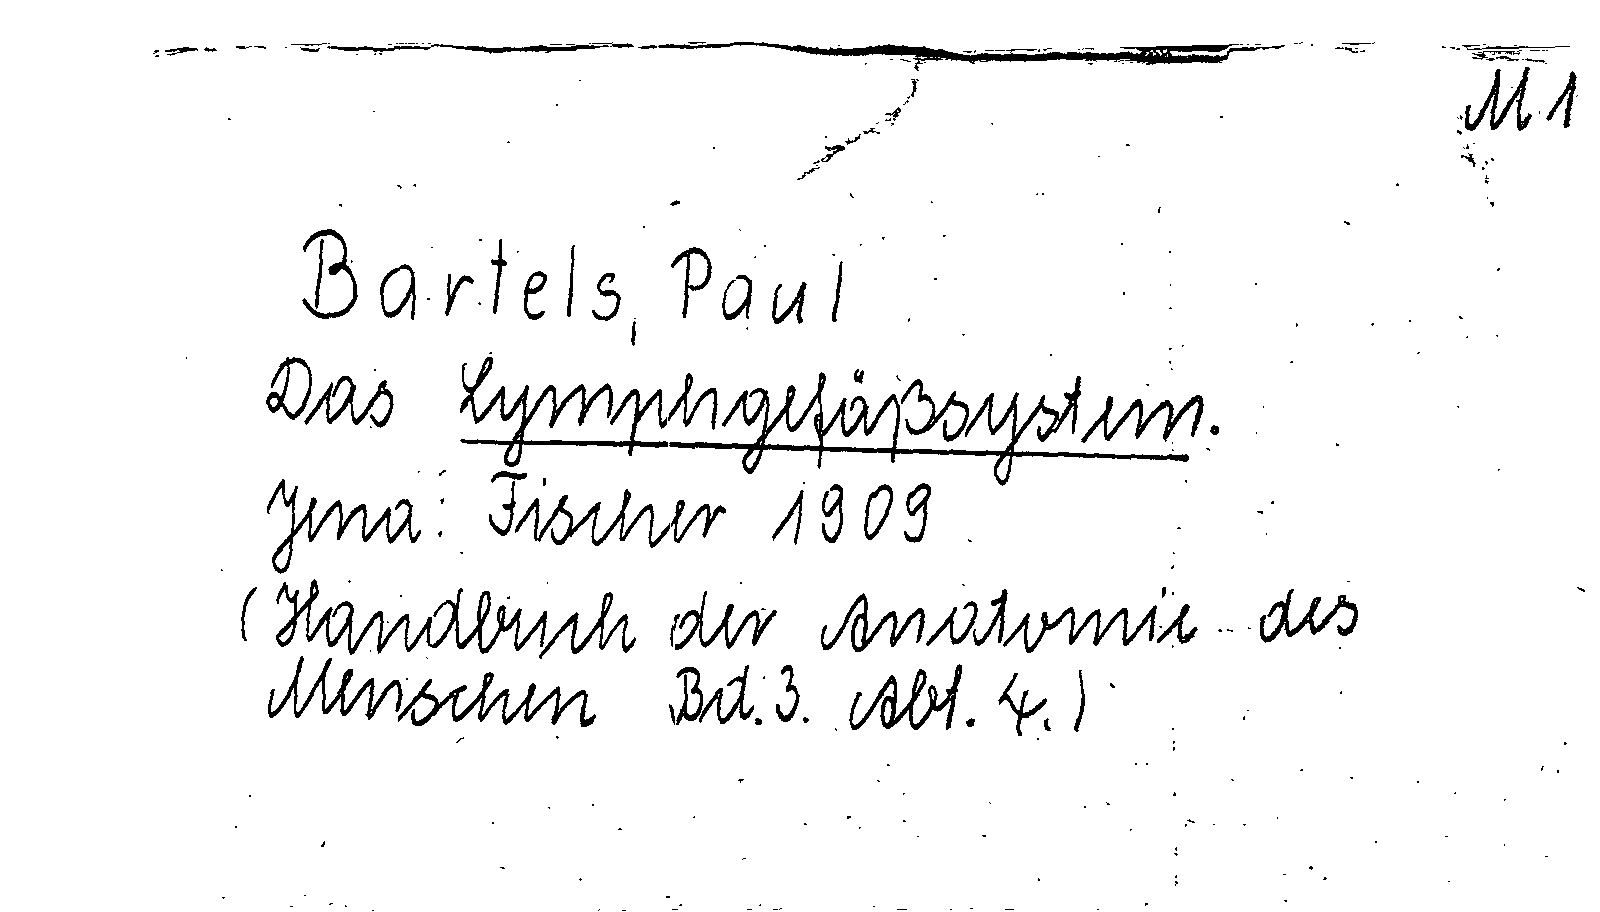 M 1
Bartels, Paul
Das Lymphgefäßsystem.
Jena: Fischer 1909
(Handbuch der Anatomie des
Menschen Bd. 3. Abt. 4.)